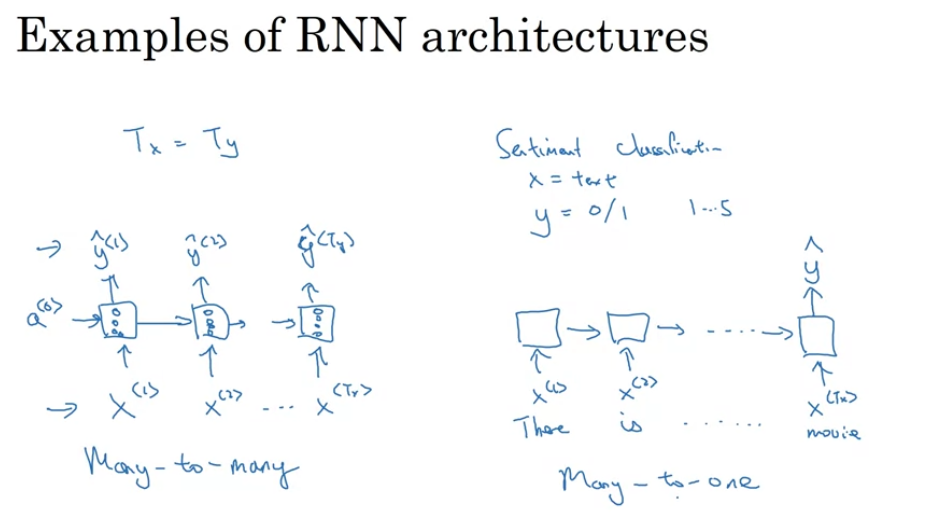 Examples of RNN architectures
Tx = Ty
ŷ<1> ŷ<2> ŷ<Ty>
a<0>
x<1> x<2> ... x<Tx>
Many-to-many
Sentiment classification
x = text
y = 0/1 1...5
ŷ
.....
x<1> x<2> x<Tx>
There is ...... movie
Many-to-one